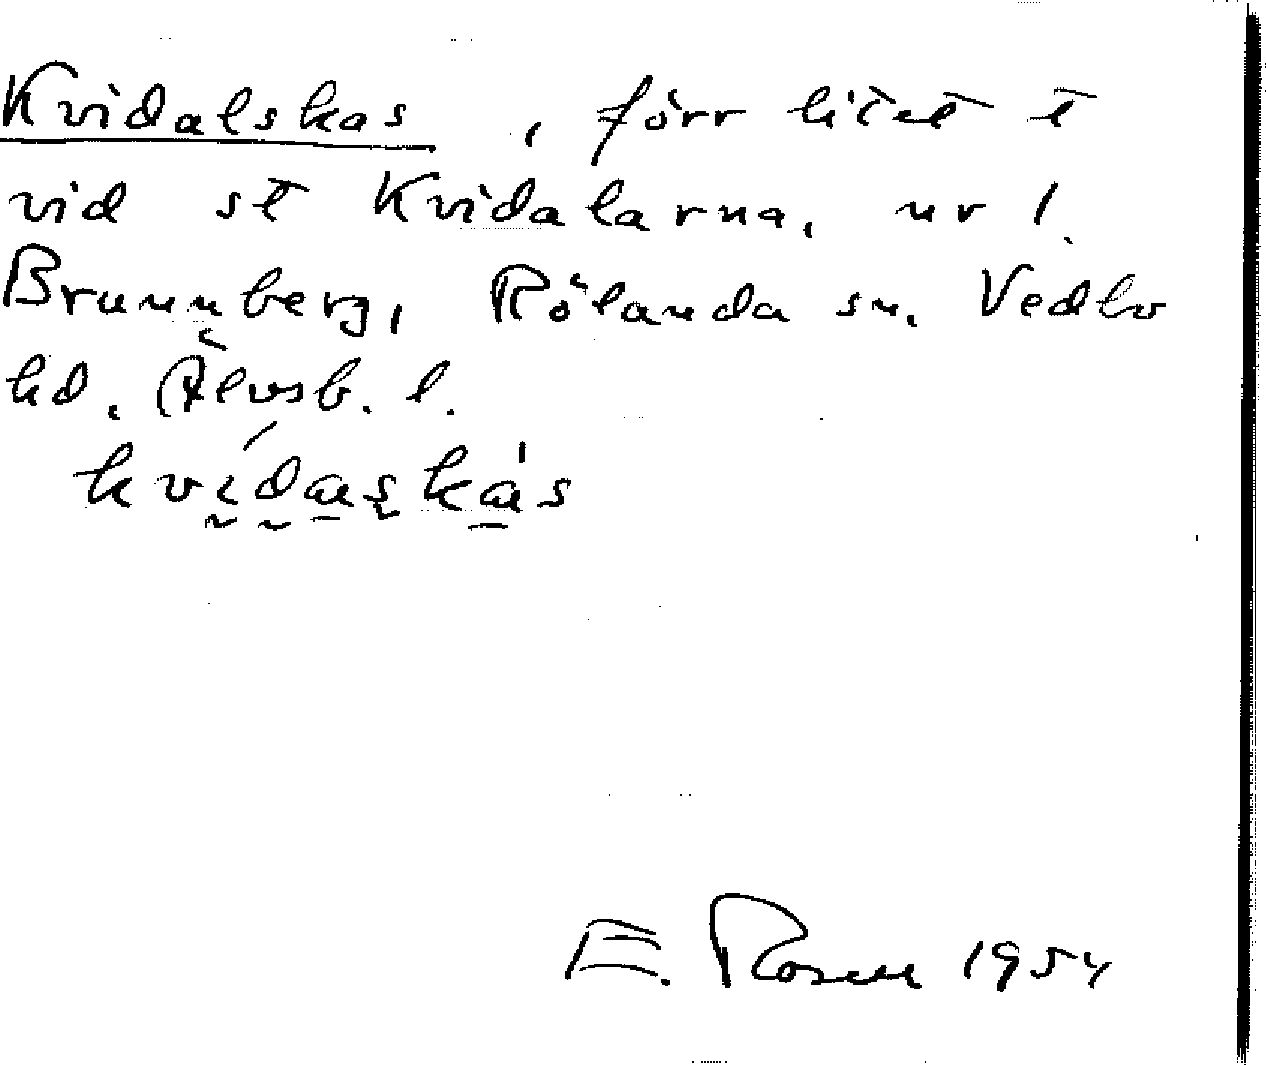 Kvidalskas, förr litet t
vid st Kvidalarna, ur 1.
Brunnberg, Rölanda sn. Vedbo
hd. Älvsb. l.
E. Rosell 1954